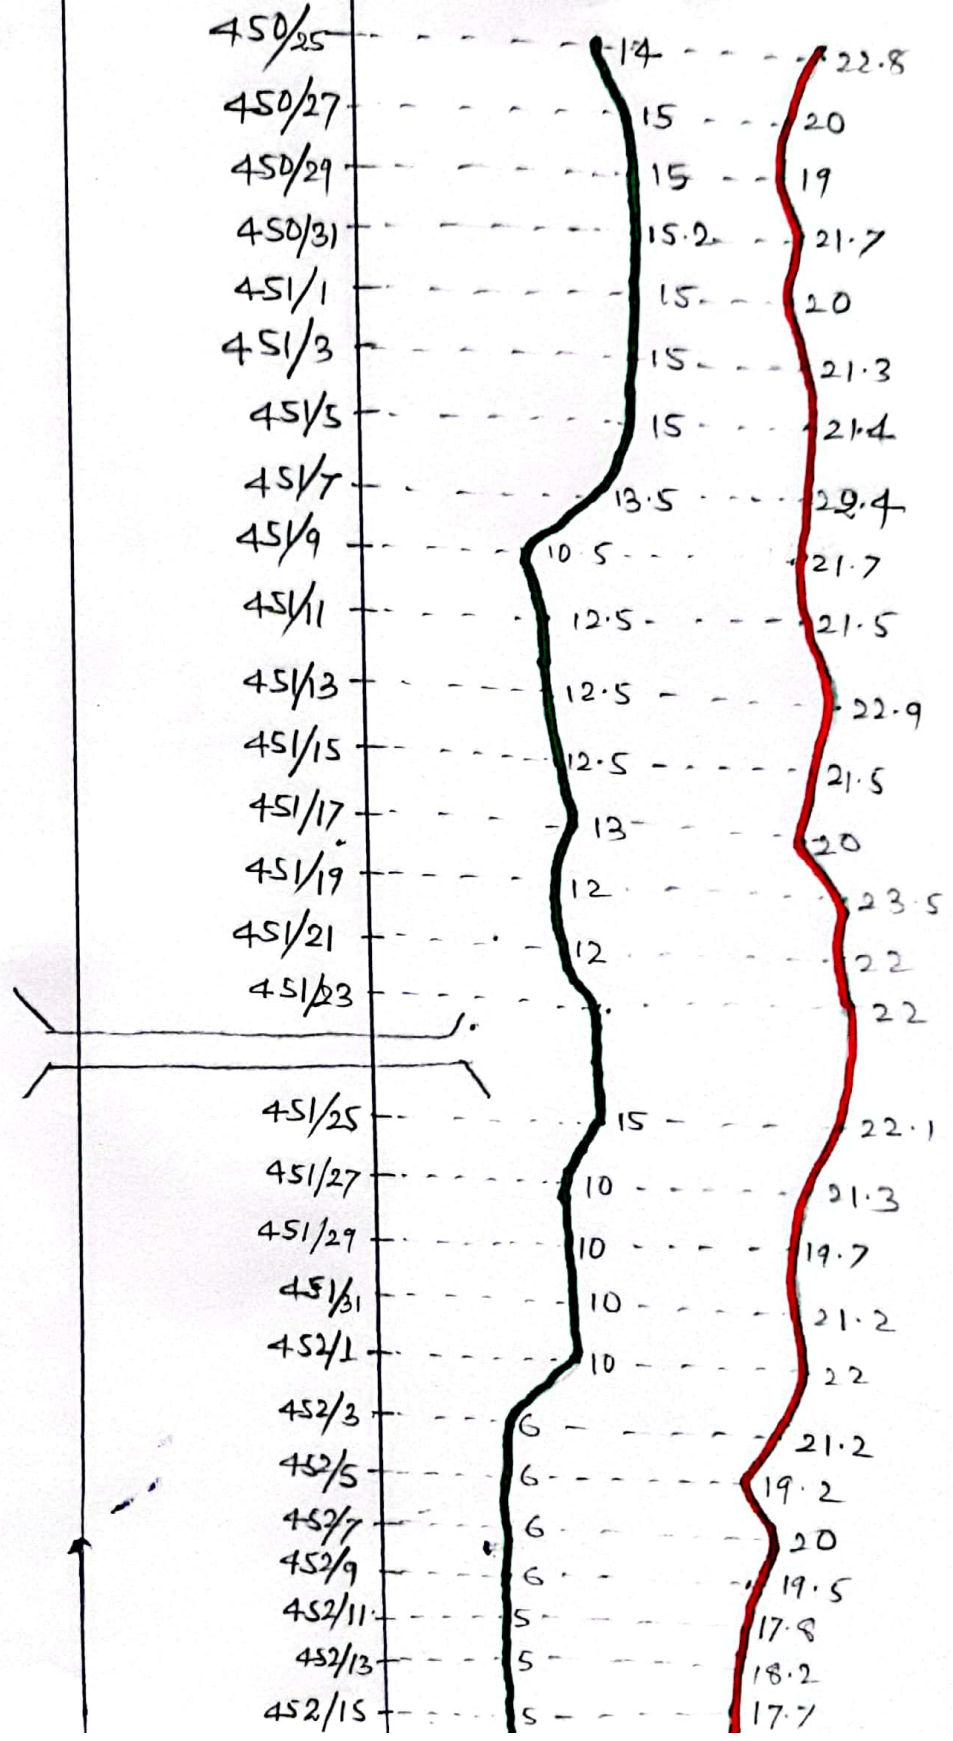 450/25 14 22.8
450/27 15 20
450/29 15 19
450/31 15.2 21.7
451/1 15 20
451/3 15 21.3
451/5 15 21.4
451/7 13.5 22.4
451/9 10.5 21.7
451/11 12.5 21.5
451/13 12.5 22.9
451/15 12.5 21.5
451/17 13 20
451/19 12 23.5
451/21 12 22
451/23 22
451/25 15 22.1
451/27 10 21.3
451/29 10 19.7
451/31 10 21.2
452/1 10 22
452/3 6 21.2
452/5 6 19.2
452/7 6 20
452/9 6 19.5
452/11 5 17.8
452/13 5 18.2
452/15 5 17.7